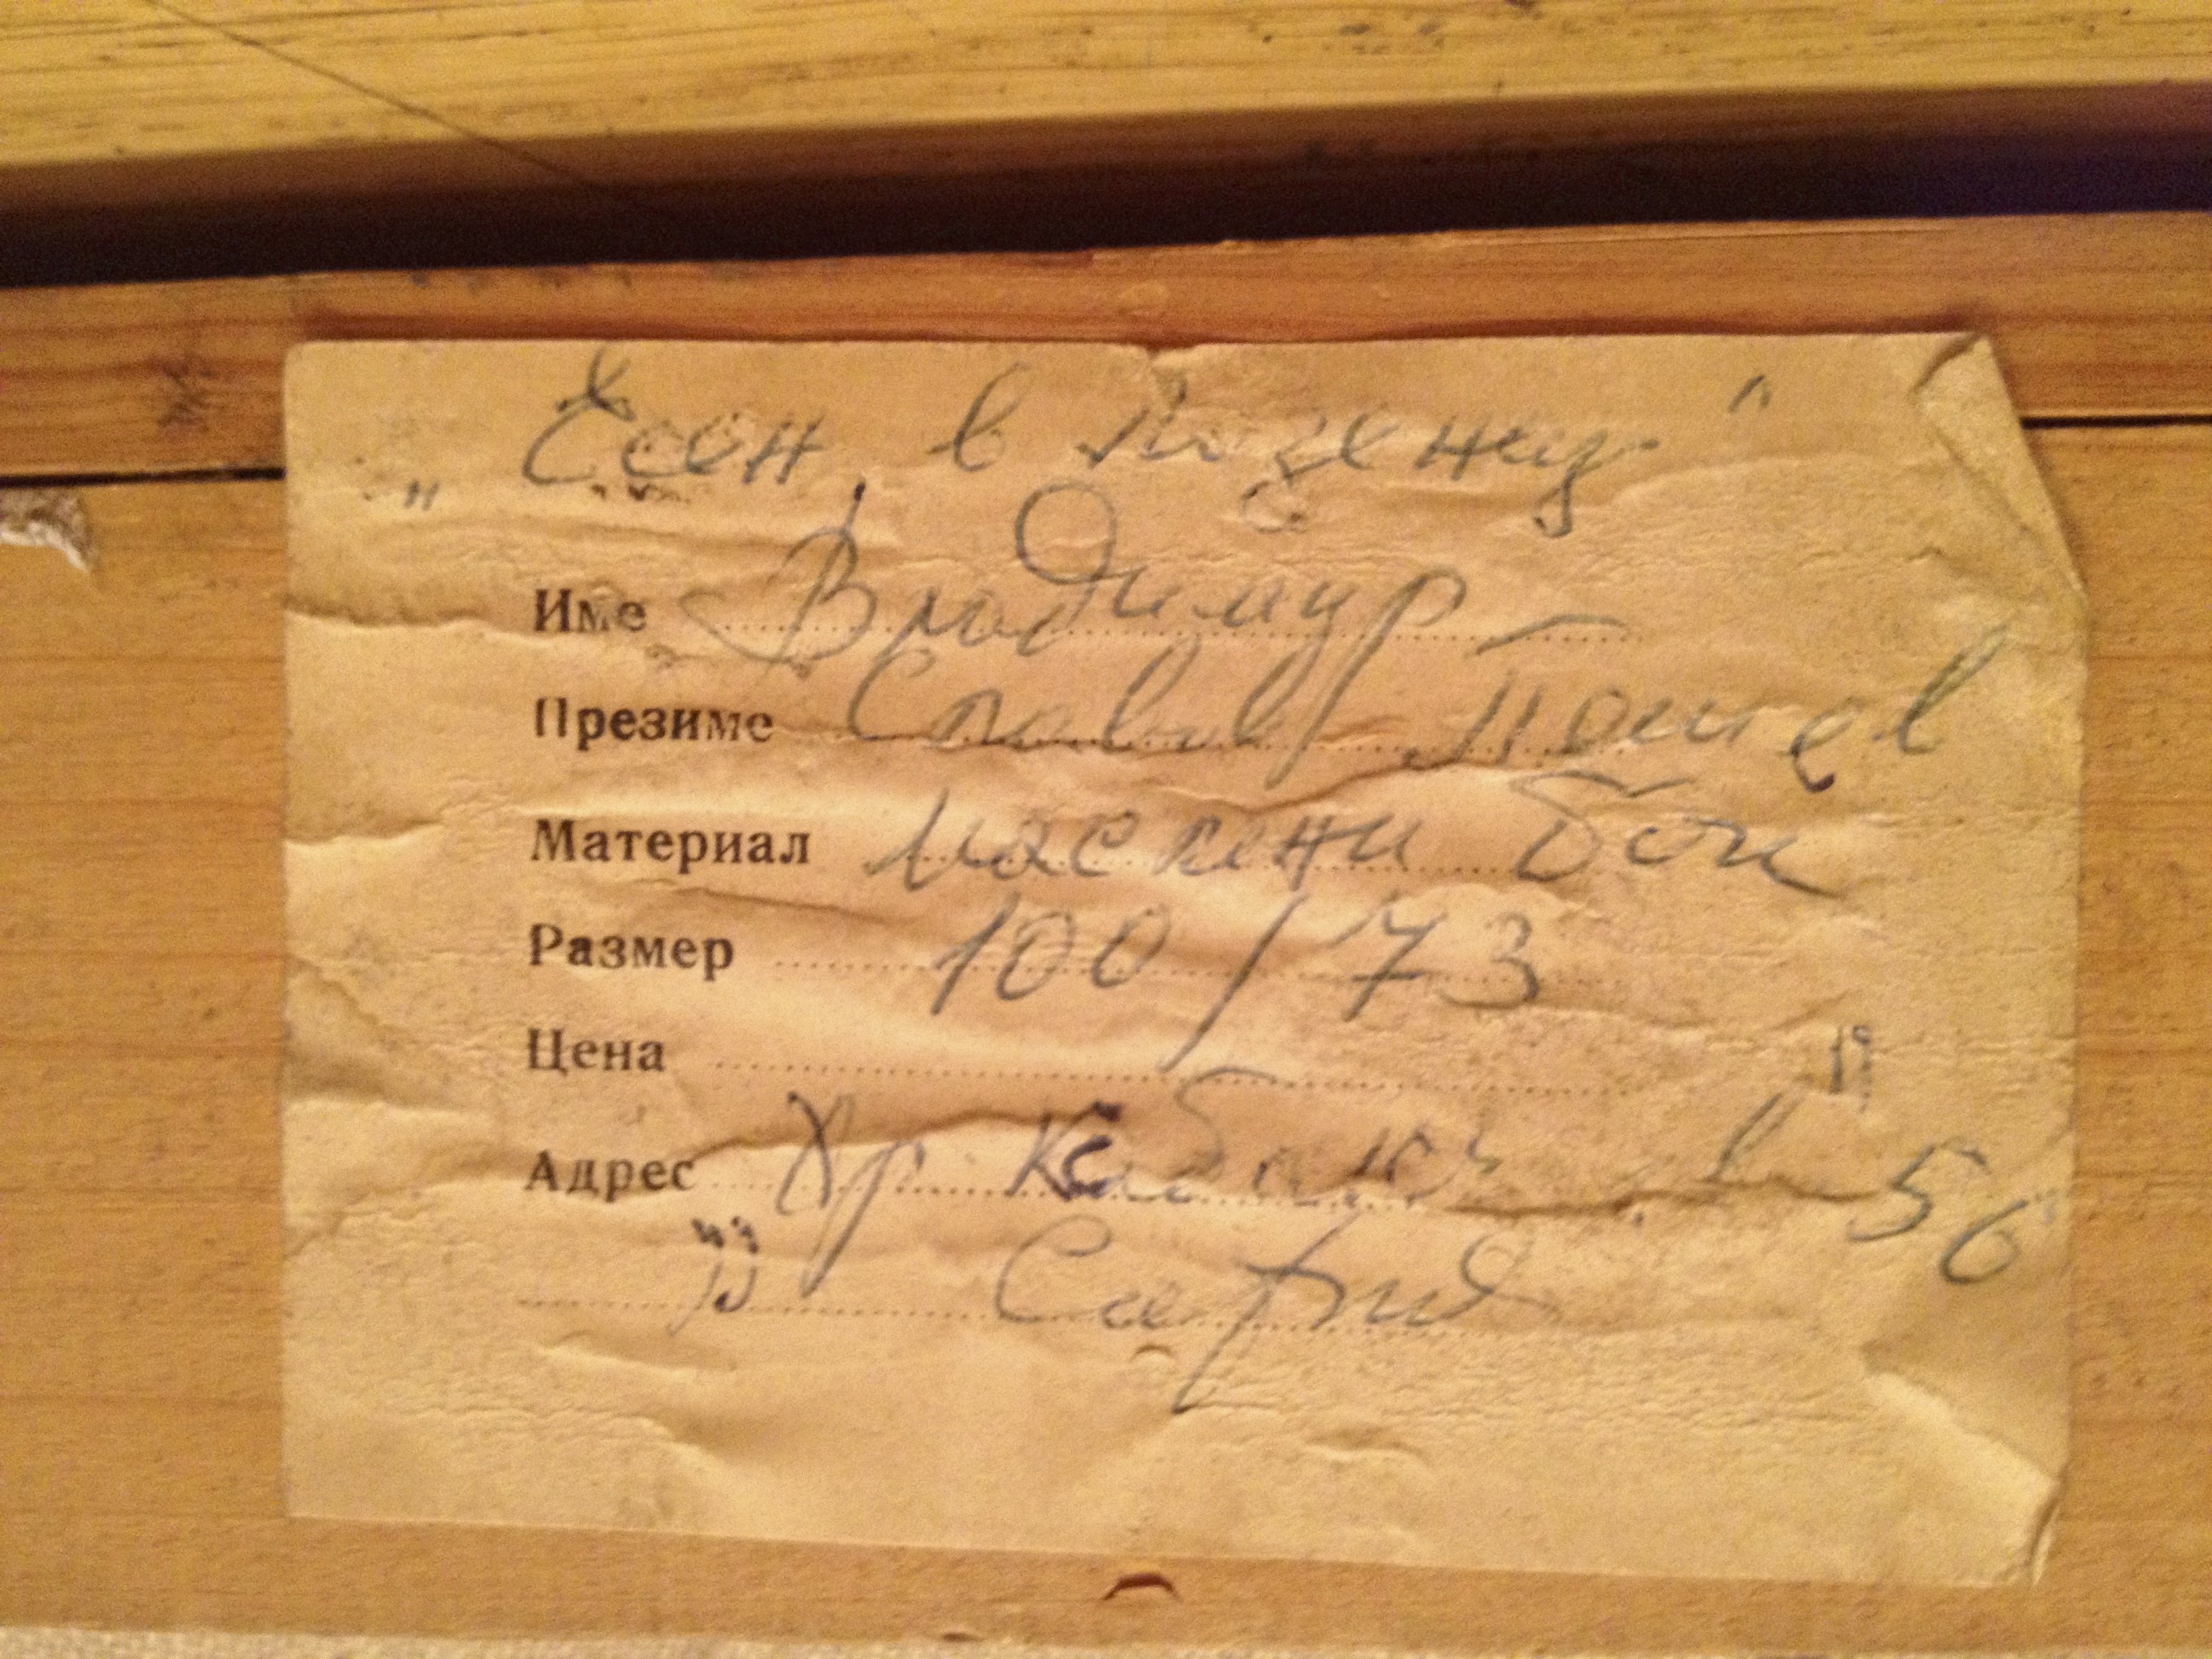 „Есен в Лозенец“
Име Владимир
Презиме Славов Пошев
Материал маслени бои
Размер 100/73
Цена
Адрес Хр. 56
София